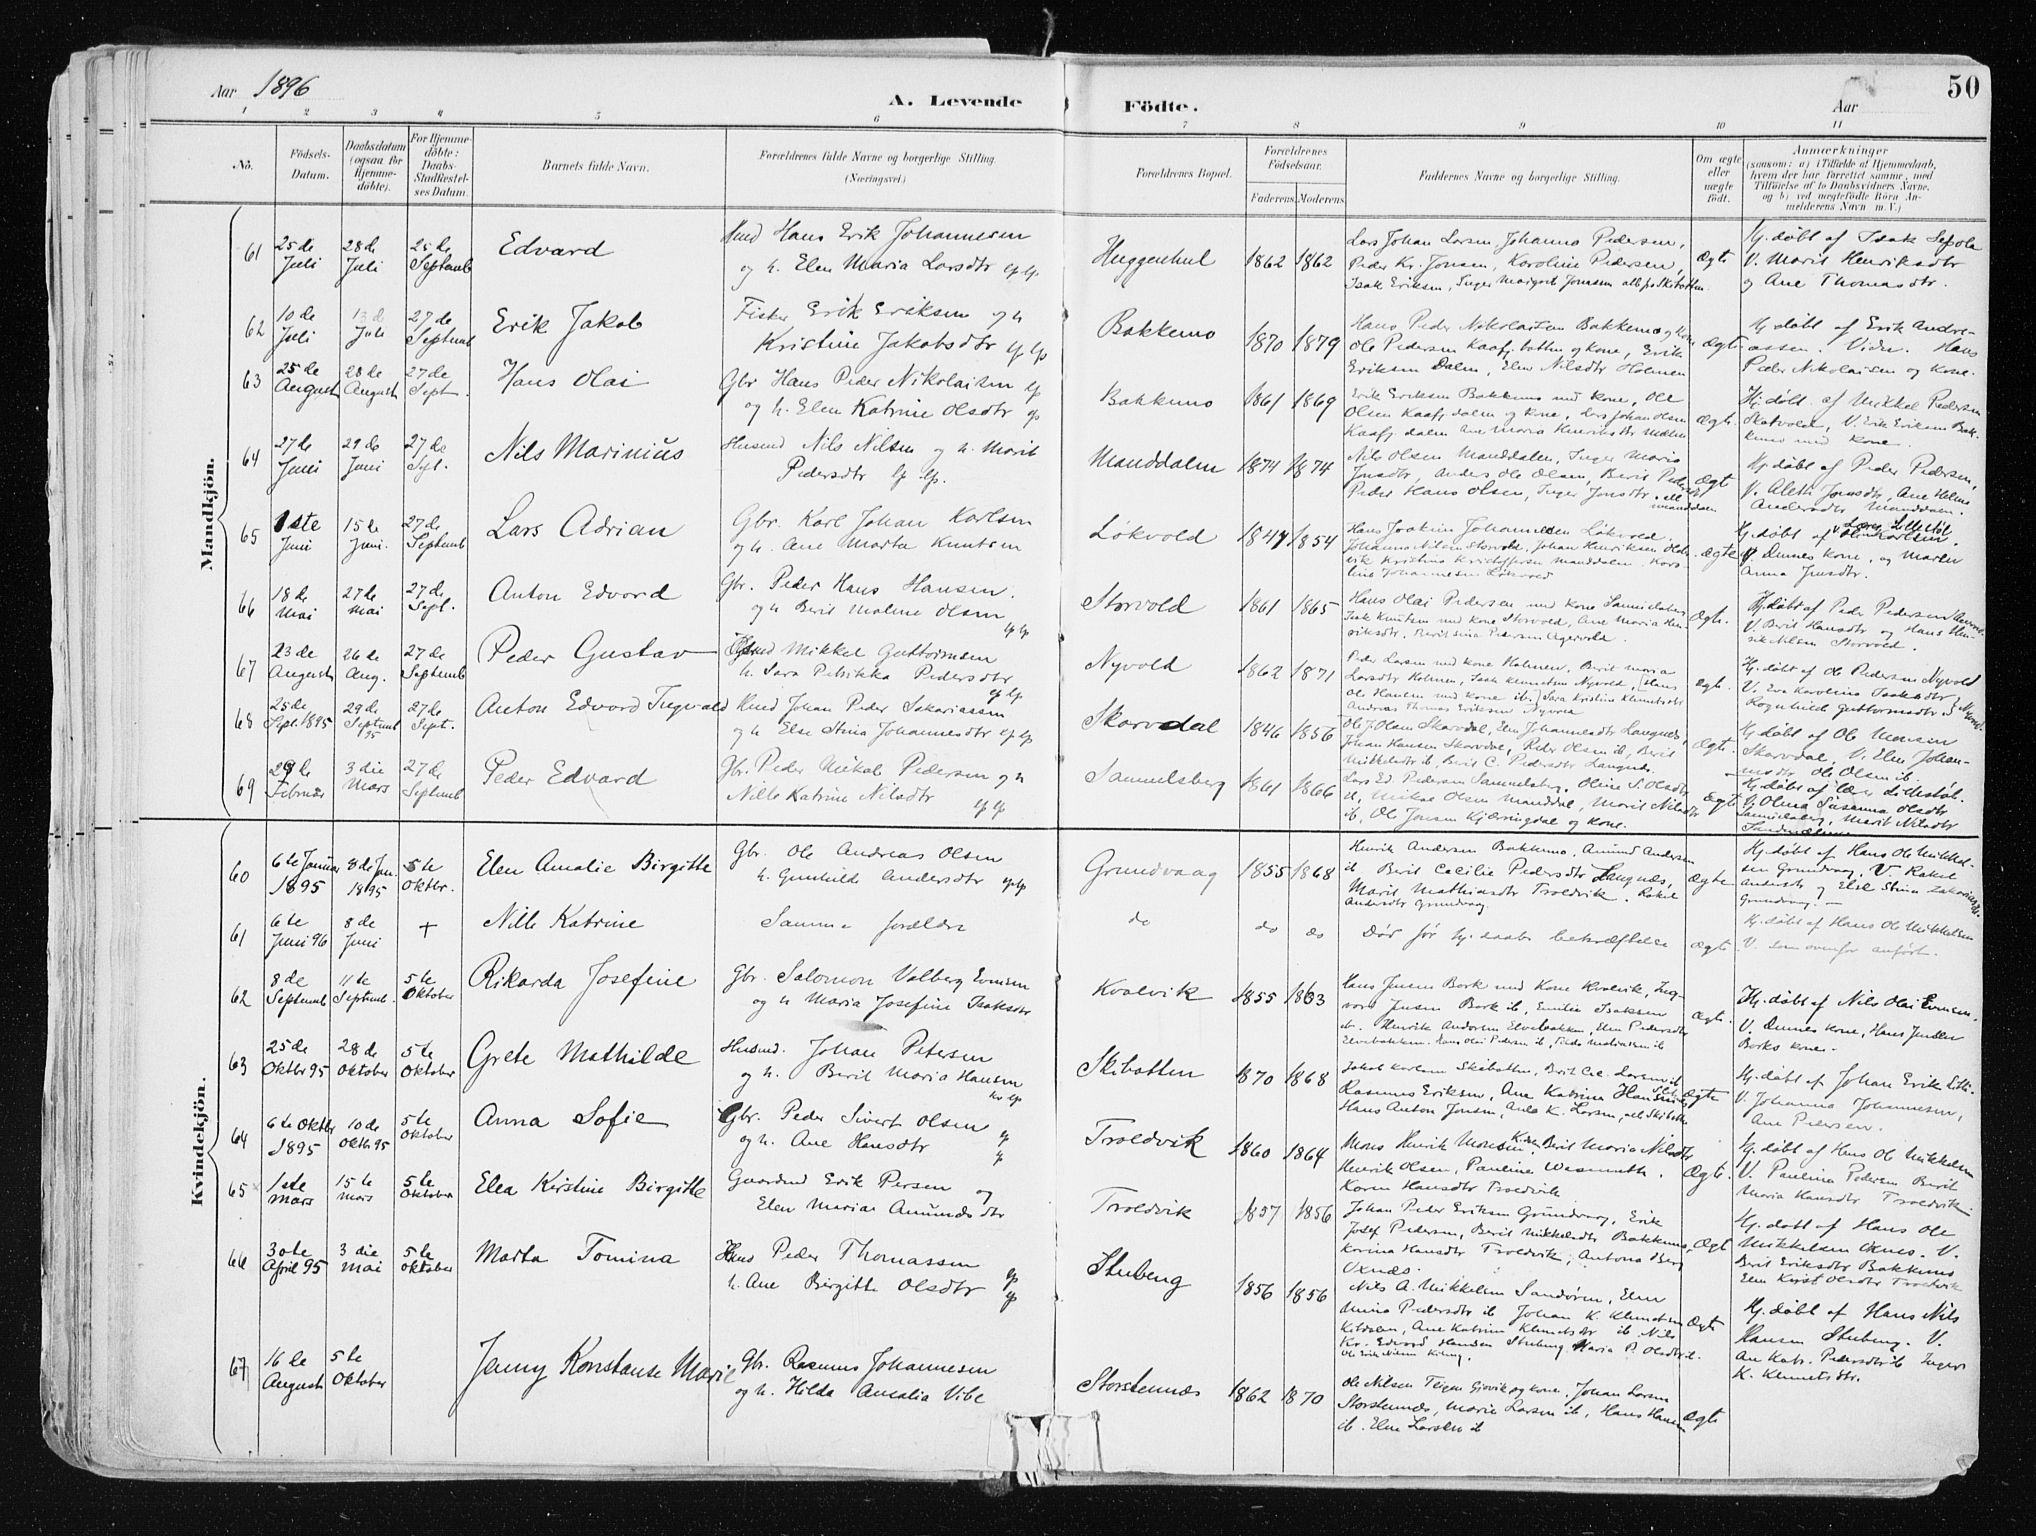 Aar 1896
A. Levende Födte.
Aar
50
1 2 3 4 5 6 7 8 9 10 11
No.
Födsels-Datum.
Daabsdatum (ogsaa for Hjemme-döbte).
For Hjemme-döbte: Daabs-Stadfæstel-ses Datum.
Barnets fulde Navn.
Forældrenes fulde Navne og borgerlige Stilling. (Næringsvei.)
Forældrenes Bopæl.
Forældrenes Födselsaar.
Faderens. Moderens.
Faddernes Navne og borgerlige Stilling.
Om ægte eller uægte födt.
Anmærkninger
(saasom: a) i Tilfælde af Hjemmedaab, hvem der har forrettet samme, med Tilföielse af to Daabsvidners Navne, og b) ved uægtefödte Börn An-melderens Navn m. V.)
Mandkjön.
61 25 de Juli 28 de Juli 25 de Septemb Edvard
Hans Erik Johannesen
og h. Elen Maria Larsdtr
Huggenhul 1862 1862
Lars Johan Larsen, Johanna Pedersen,
Peder Kr. Jonsen, Karoline Pedersen,
Isak Eriksen, Inger Margret Jonsen
ægte
Hj. døbt af Isak
V. Marit Henriksdtr
og Ane Thomasdtr.
62 10 de Juli 13 de Juli 27 de Septemb Erik Jakob
Erik Eriksen og h
Kristine Jakobsdtr
Bakkemo 1870 1879
Hans Peder Nikolaisen Bakkemo og Kone
Ole Pedersen og kone, Erik
Eriksen Dalen, Elen Nilsdtr Holmen
ægte
Hj døbt af Erik Andre-
assen. Hans
Peder Nikolaisen og kone.
63 25 de August 28 de August 27 de Sept. Hans Olai
Gbr Hans Peder Nikolaisen
og h. Elen Katrine Olsdtr
Bakkemo 1861 1869
Erik Eriksen Bakkemo med kone, Ole
Olsen Kaafjdalen og kone, Lars Johan Olsen
Kaafjdalen Ane Maria Henriksdtr
ægte.
Hj. døbt af Mikkel Pedersen
Skatvold, V. Erik Eriksen Bak-
kemo med kone.
64 27 de Juni 29 de Juni 27 de Spt. Nils Marinius
Husmd Nils Nilsen og h. Marit
Pedersdtr
Manddalen 1874 1874
Nils Olsen Manddalen, Inger Maria
Jonsdtr, Anders Ole Olsen, Berit Pedersdtr
Peder Hans Olsen, Inger Jonsdtr. alle
manddalen
ægt
Hj døbt af Peder Pedersen,
V. Aleth Jonsdtr, Ane Helene
Andersdtr Manddalen.
65 1ste Juni 15 de Juni. 27 de Septemb Lars Adrian
Gbr. Karl Johan Karlsen
og h. Ane Marta Knutsen
Løkvold 1847 1854
Hans Joakim Johannesen Løkvold
Johanna Nilsen Storvold, Johan Henriksen
Kristina Kristoffersen Manddalen, Karo-
line Johannesen Løkvold
ægte
Hj. døbt af
V Dennes kone, og Maren
Anna Jensdtr.
66 18 de Mai 27 de Mai 27 de Sept. Anton Edvard
Gbr. Peder Hans Hansen.
og h Berit Malene Olsen
Storvold 1861 1865
Hans Olai Pedersen med kone Samuelsberg
Isak Knutsen med kone Storvold, Ane Maria Hen-
riksdtr. Beritsina Pedersen Agervold.
ægte.
Hj. døbt af Peder Pedersen
V. Berit Hansdtr og Hans Hen-
rik Nilsen Storvold.
67 23 de August 26 de Aug. 27 de Septemb Peder Gustav
Mikkel Guttormsen
h. Sara Petrikka Pedersdtr
Nyvold 1862 1871
Peder Larsen med kone Holmen, Berit Maria
Larsdtr Holmen, Isak Klemetsen Nyvold, Hans
Ole Hansen med kone ib, Sara Kristine Klemetsdtr
Andreas Thomas Eriksen Nyvold
ægt.
Hj. døbt af Ole Pedersen Nyvold
V. Eva Karolina Isaksdtr
Ragnhilde Guttormsdtr
68 25 de Spt. 1895 29 de Septemb 95 27 de Sept. Anton Edvard Ingvald
Johan Peder Sakariassen
og h Else Stina Johannesdtr
Skarvdal 1846 1856
Ole J. Olsen Skarvdal, Elen Johannesdtr Langnes,
Johan Hansen Skarvdal, Peder Olsen ib, Berit
Mikkelsdtr ib, Berit C. Pedersdtr Langnes.
ægt.
Hj. døbt af Ole Monsen
Skarvdal, V. Elen Johan-
nesdtr Ole Olsen ib.
69 29 de Februar 3 die Mars 27 de Septemb Peder Edvard
Gbr. Peder Mikal Pedersen og h
Nille Katrine Nilsdtr
Samuelsberg 1861 1866
Lars Ed. Pedersen Samuelsberg, Oline S. Olsdtr
ib, Mikal Olsen Manddal, Marit Nilsdtr
ib, Ole Jonsen Kjerringdal og kone.
Ægt
Hj. døbt af
V Olina Susanna Olsdtr
Samuelsberg, Marit Nilsdtr
Kvindekjön.
60 6 te Januar 1895 8 de Jan. 1895 5te Oktbr. Elen Amalie Birgitte
Gbr. Ole Andreas Olsen
h. Gunhilde Andersdtr
Grundvaag 1855 1868
Henrik Andersen Bakkemo. Amund Andersen
ib Berit Cecilie Pedersdtr Langnes,
Marit Mathiasdtr Troldvik. Rakel
Andersdtr Grundvaag
ægte
Hj. døbt af Hans Ole Mikkel-
sen Grundvaag. V Rakel
Andersdtr og Else Stina Zakariasdtr
Grundvaag.
61 6 te Juni 96 8 de Juni + Nille Katrine
Samme forældre
do do do
Død før hj. daabs bekræftelse
ægte
Hj. døbt af Hans Ole Mikkelsen
V. som ovenfor anført.
62 8 de Septemb 11 te Septemb. 5 te Oktober Rikarda Josefine
Gbr. Salomon Valberg Evensen
og h Maria Josefine Isaksdtr
Kvalvik 1855 1863
Hans Jensen Bork med kone Kvalvik, Ing-
vard Jensen Bork ib, Emilie Isaksen
ib. Henrik Andersen Elvebakken, Elen Pedersdtr
Elvebakken. Hans Olai Pedersen ib,
ægt.
Hj. døbt af Nils Olai Evensen.
V. Dennes kone, Hans Jensen
Borks kone.
63 25 de Oktbr 95 28 de Oktober 5 te Oktober Grete Mathilde
Husmd. Johan Petersen
og h. Berit Maria Hansen
Skibotten 1870 1868
Jakob Karlsen Skibotten, Berit Cec. Larsen ib
Rasmus Eriksen, Ane Katrina Hansen
Hans Anton Jonsen, Ane K. Larsen, alle Skibotten
Ægte
Hj. døbt af Johan Erik
V. Johanna Johannesen,
Ane Petersen.
64 6 te Oktbr 1895 10 de Oktbr 95 5te Oktober Anna Sofie
Gbr. Peder Sivert Olsen
og h. Ane Hansdtr
Troldvik 1860 1864
Mons Henrik Monsen, Berit Maria Nilsdtr
Henrik Olsen, Pauline Wesmeth.
Karen Hansdtr Troldvik
Ægte.
Hj. døbt af Hans Ole Mikkelsen
V. Paulina Pedersen Berit
Maria Hansdtr Troldvik.
65 1ste Mars 15 de Mars 5 te Oktober Elea Kirstine Birgitte
Gaardmd Erik Persen og
Elen Marie Amundsdtr
Troldvik 1857 1856
Johan Peder Eriksen Grundvaag, Erik
Josef Pedersen, Berit Mikkelsdtr Bakkemo,
Karina Hansdtr Troldvik, Antona Berg
Oxnes.
Ægt
Hj. døbt af Hans Ole
Mikkelsen Oxnes. V.
Berit Eriksdtr Bakkemo
Elen Kirst Olsdtr Troldvik
66 30te April 95 3 die Mai 5 te Oktober Marta Tomina
Peder Thomassen
h. Ane Birgitte Olsdtr
Stubeng 1856 1856
Nils A. Mikkelsen Sandøren, Elen
Nina Pedersdtr ib Johan K. Klemetsen
Kitdalen, Ane Katrine Klemetsdtr ib. Nils
Kr. Edevard Hansen Stubeng Maria P. Olsdtr ib.
Ole Erik Nilsen
Ægte
Hj. døbt af Hans Nils
Hansen Stubeng. V.
An Katr. Pedersdtr ib Inger
K. Klemetsdtr.
67 16 de August 5 te Oktober Jenny Konstanse Marie
Gbr. Rasmus Johannesen
og h. Hilda Amalia Vibe
Storstennæs 1862 1870
Ole Nilsen Teigen Gjovik og kone. Johan Larsen
Storstennæs, Marie Larsen ib, Hans Hansen
ib. Elen Larsen ib
ægte